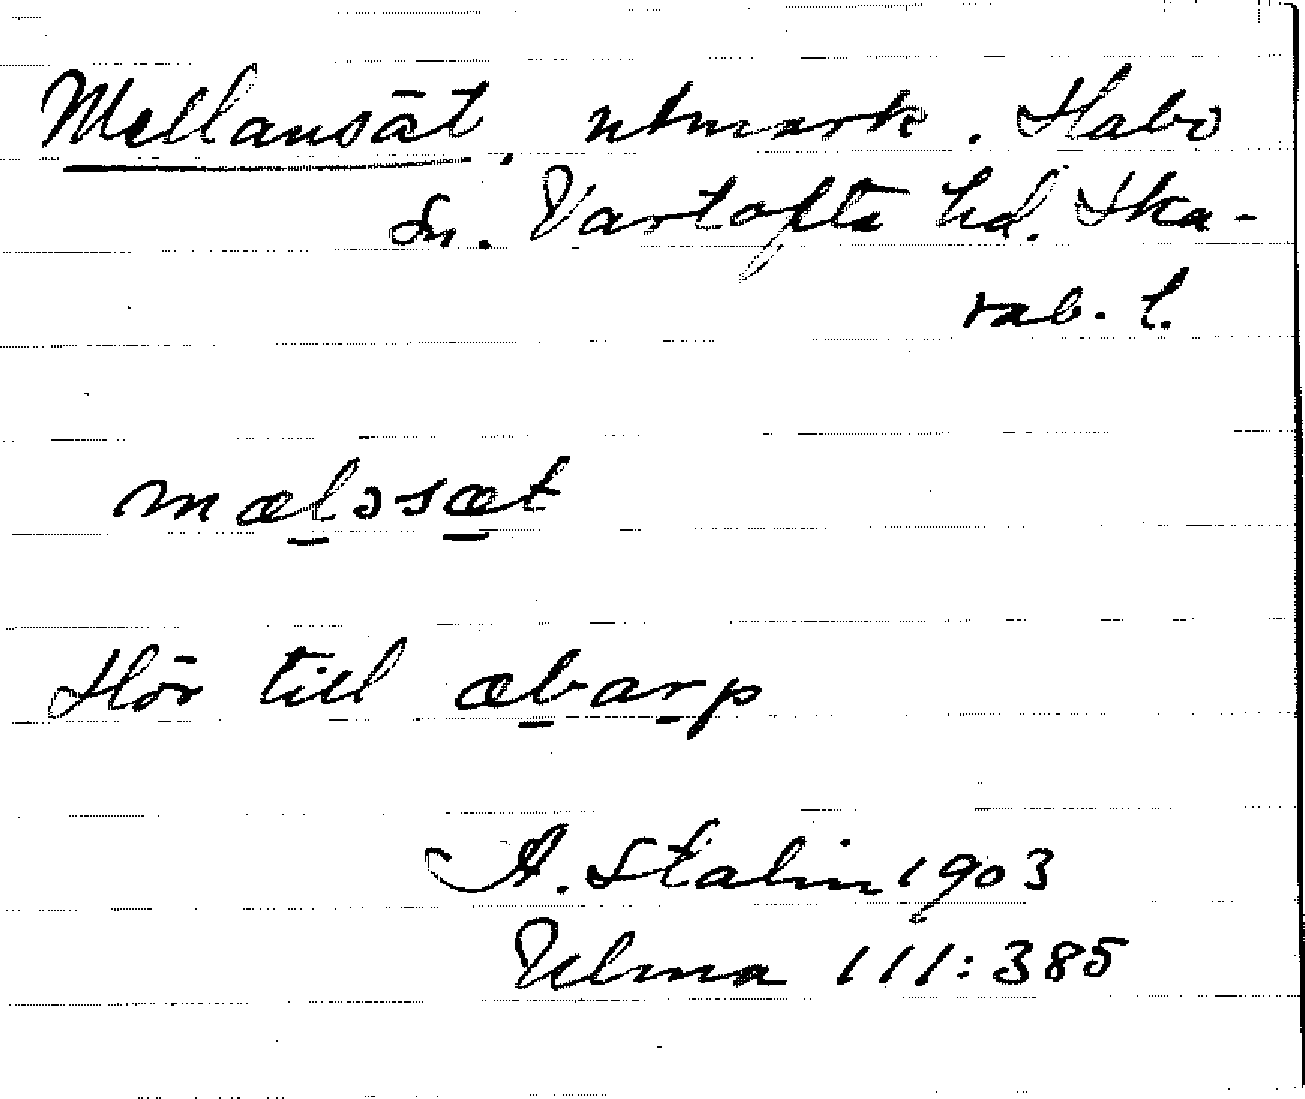 Mellansät, utmark. Habo
Sn. Vartofta hd. Ska-
rab. l.
mæləsæt
Hör till æbarp
A. Stalin 1903
Ulma 111:385